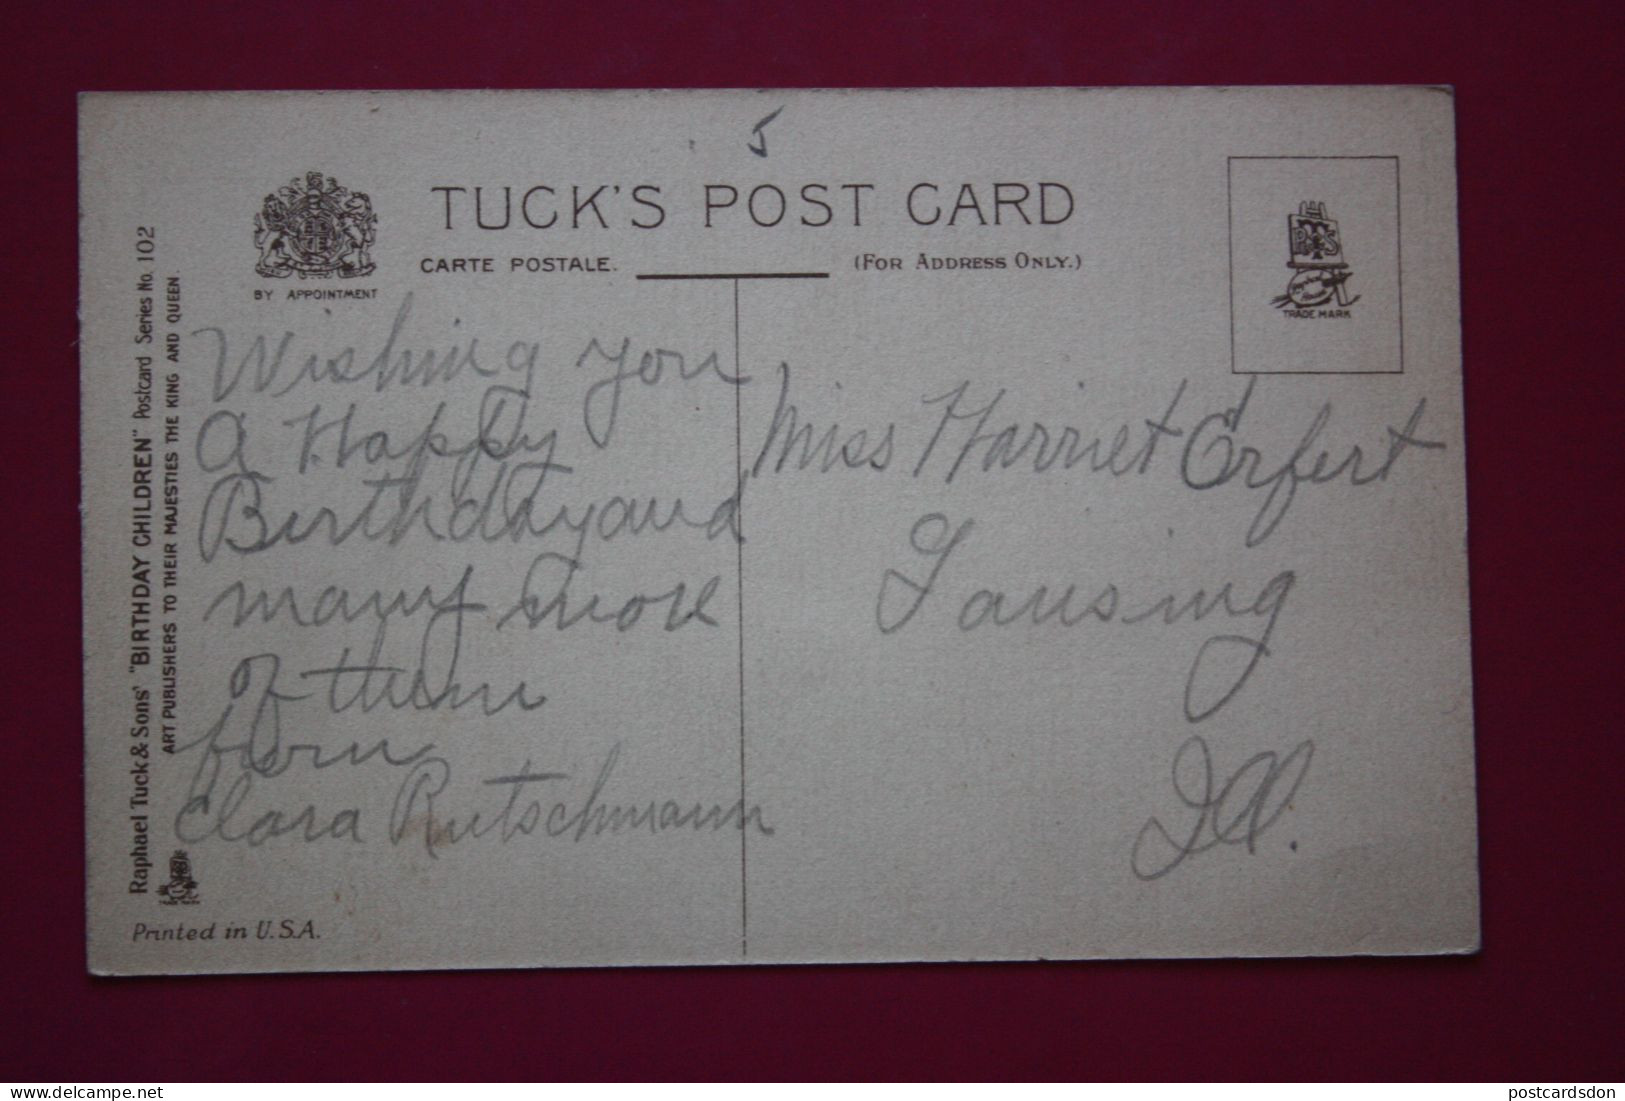 5
TUCK'S POST CARD
CARTE POSTALE.
(FOR ADDRESS ONLY.)
BY APPOINTMENT
TRADE MARK
Raphael Tuck & Sons' "BIRTHDAY CHILDREN" Postcard Series No. 102
ART PUBLISHERS TO THEIR MAJESTIES THE KING AND QUEEN.
TRADE MARK
Printed in U.S.A.
Wishing you
a Happy
Birthday and
many more
of them
from
Clara Rutschmann
Miss Harriet Erfert
Lansing
Ill.
the world's largest marketplace for collectors
postcardsdon